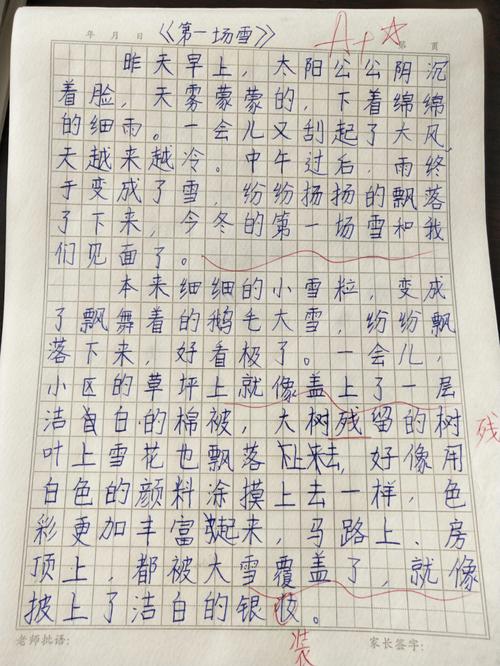 年 月 日 《第一场雪》 A+☆ 第 页
昨天早上，太阳公公阴沉
着脸，天雾蒙蒙的，下着绵绵
的细雨。一会儿又刮起了大风，
天越来越冷。中午过后，雨终
于变成了雪，纷纷扬扬的飘落
了下来，今冬的第一场雪和我
们见面了。
本来细细的小雪粒，变成
了飘舞着的鹅毛大雪，纷纷飘
落下来，好看极了。一会儿，
小区的草坪上就像盖上了一层
洁白的棉被，大树残留的树 残
叶上雪花也飘落上去，好像用
白色的颜料涂摸上去一样，色
彩更加丰富起来，马路上、房
顶上，都被大雪覆盖了，就像
披上了洁白的银妆。
老师批语: 装 家长签字: